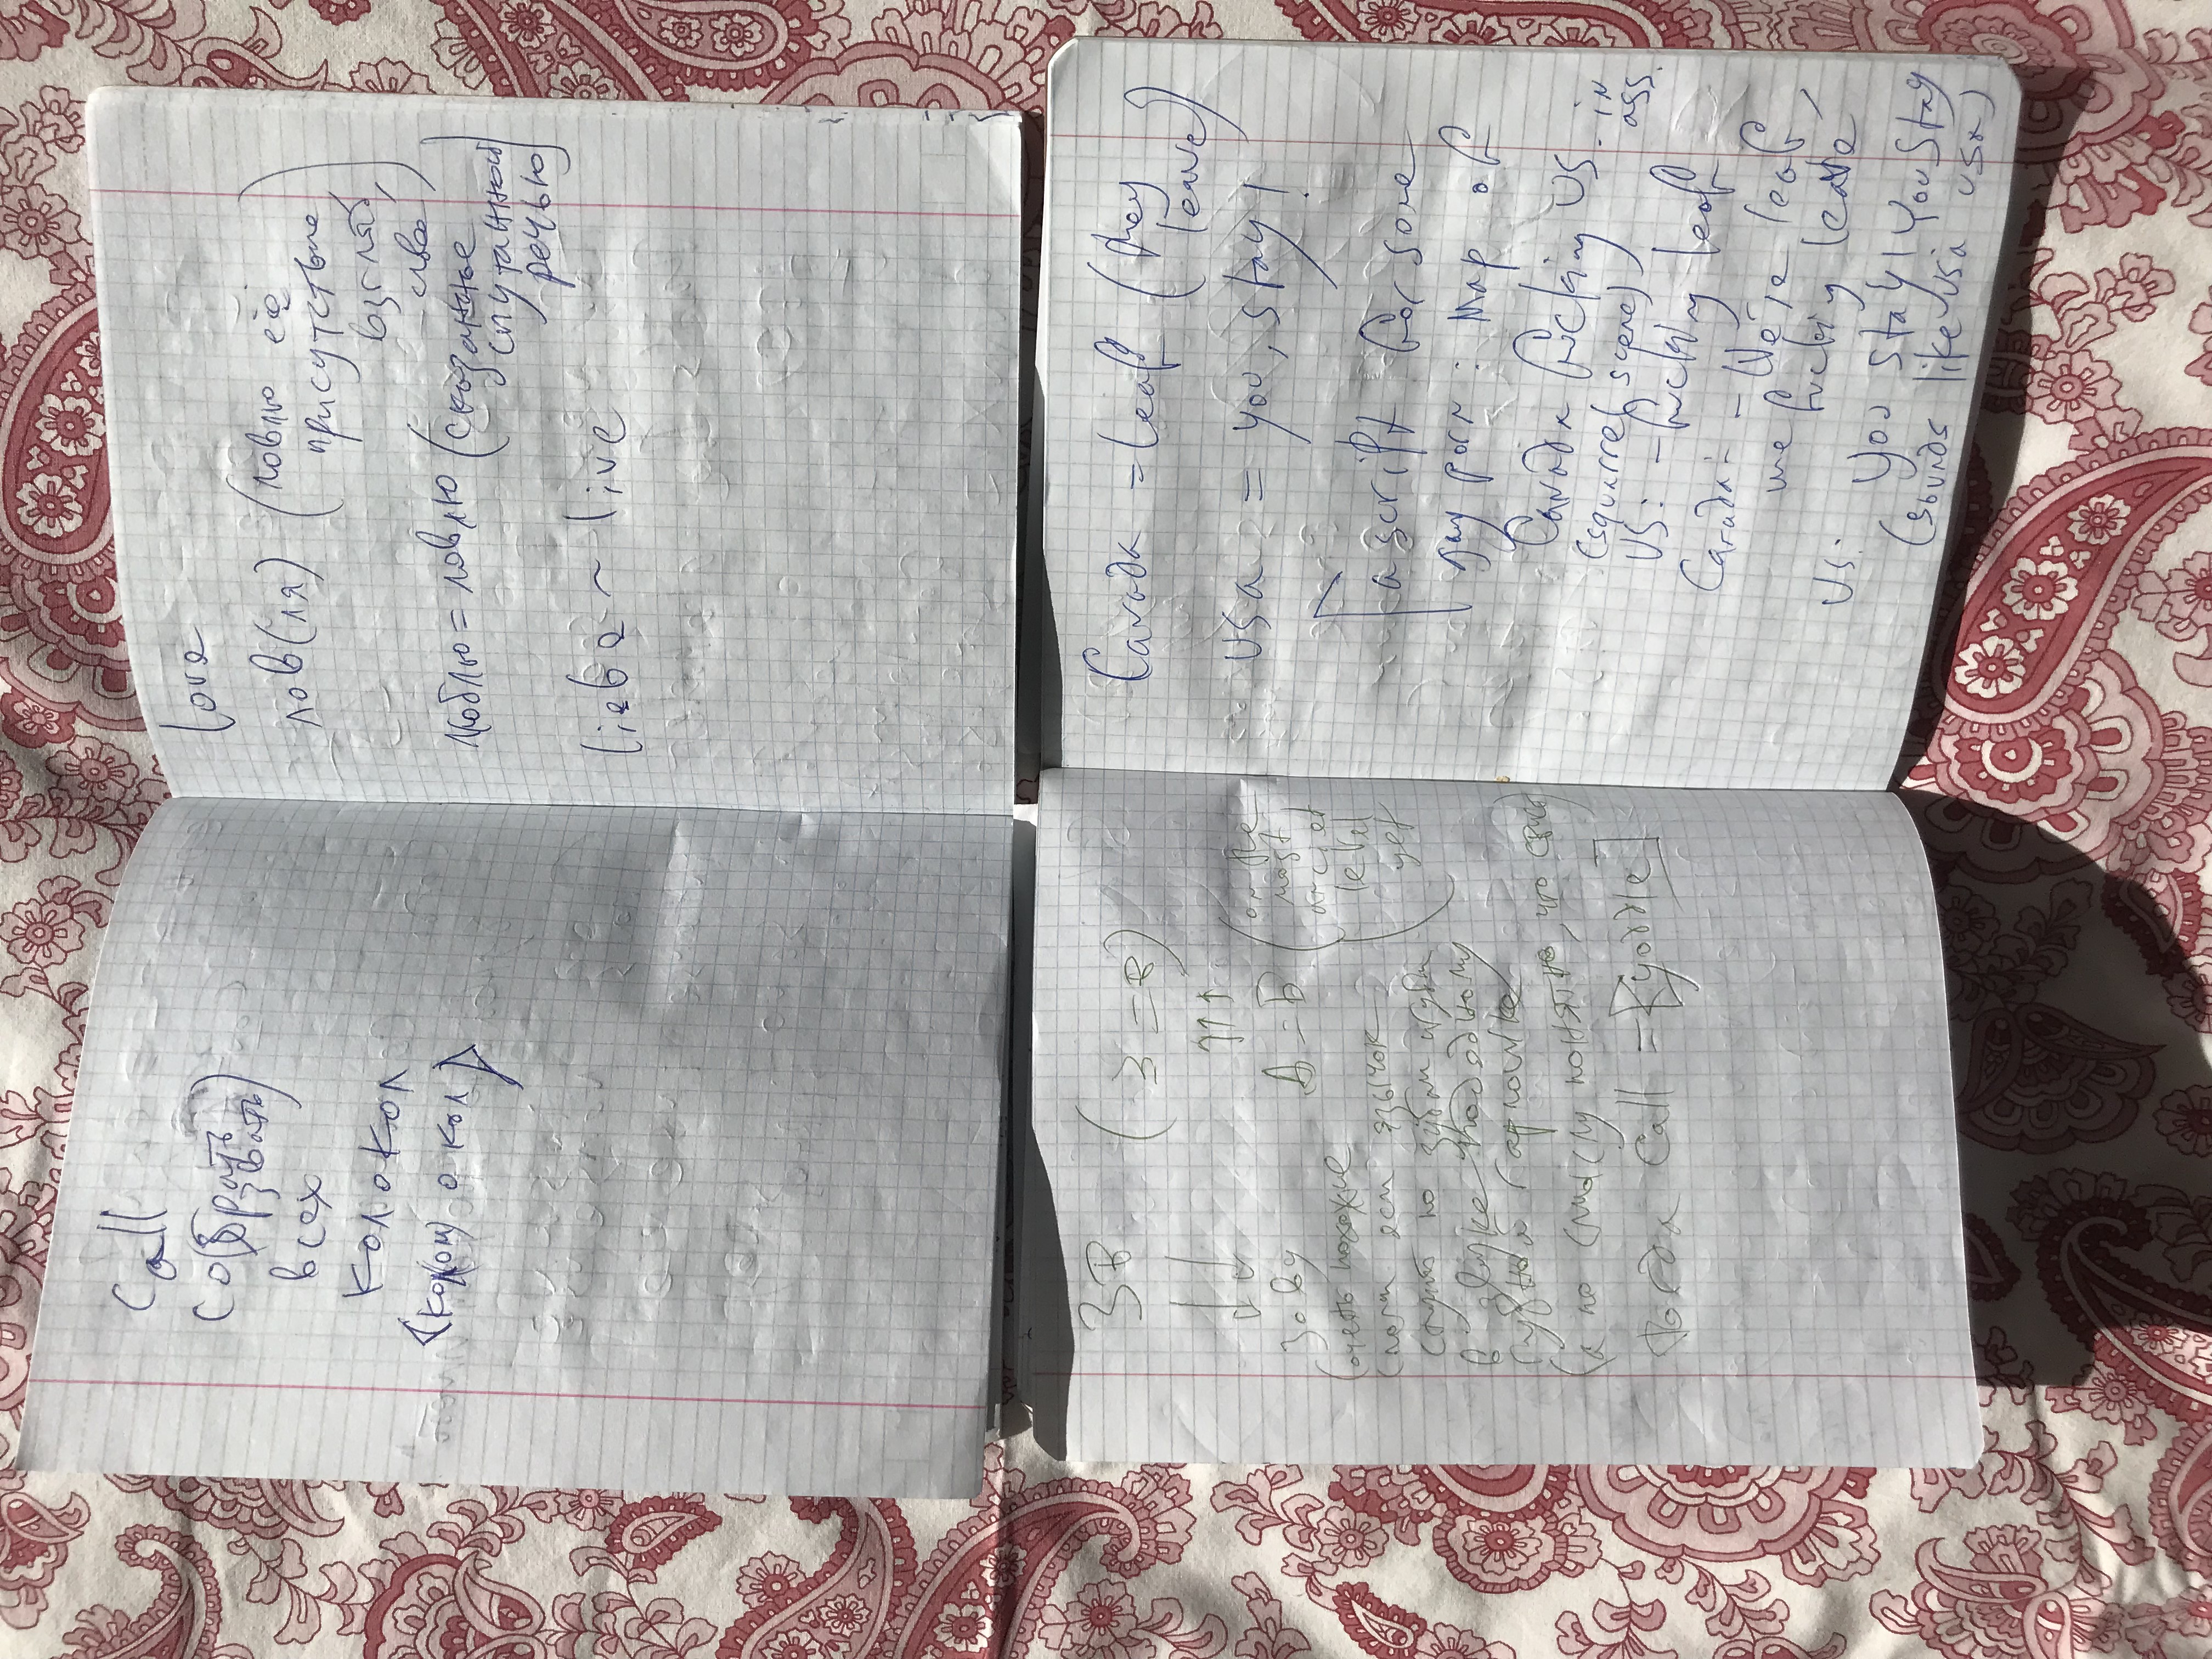 Call
со(брать
звать)
всех
колокол
(кол(ом) о кол)
love
лов(ля) (ловлю её
присутствие,
взгляд,
люблю = ловлю (сказанное
спутанной
речью)
liebe ~ live
ЗВ (З = В)
↓↓ ↑↑↑
Зову А = Б (on the
most
level
yet)
(очень похожие
язычок
по зубам
в звуке подобному
губной гармошке
(а по смыслу понятно, что
Тогда Call = [yoddle]
Canada = leaf (they
leave)
USA = you, stay!
[a script for some
gay porn: Map of
Canada fucking US in
ass.
(squirrel scene)
US: - fucking leaf
Canada: - We're leaf,
we fucking leave
US: you stay! You stay
(sounds like usa usa)